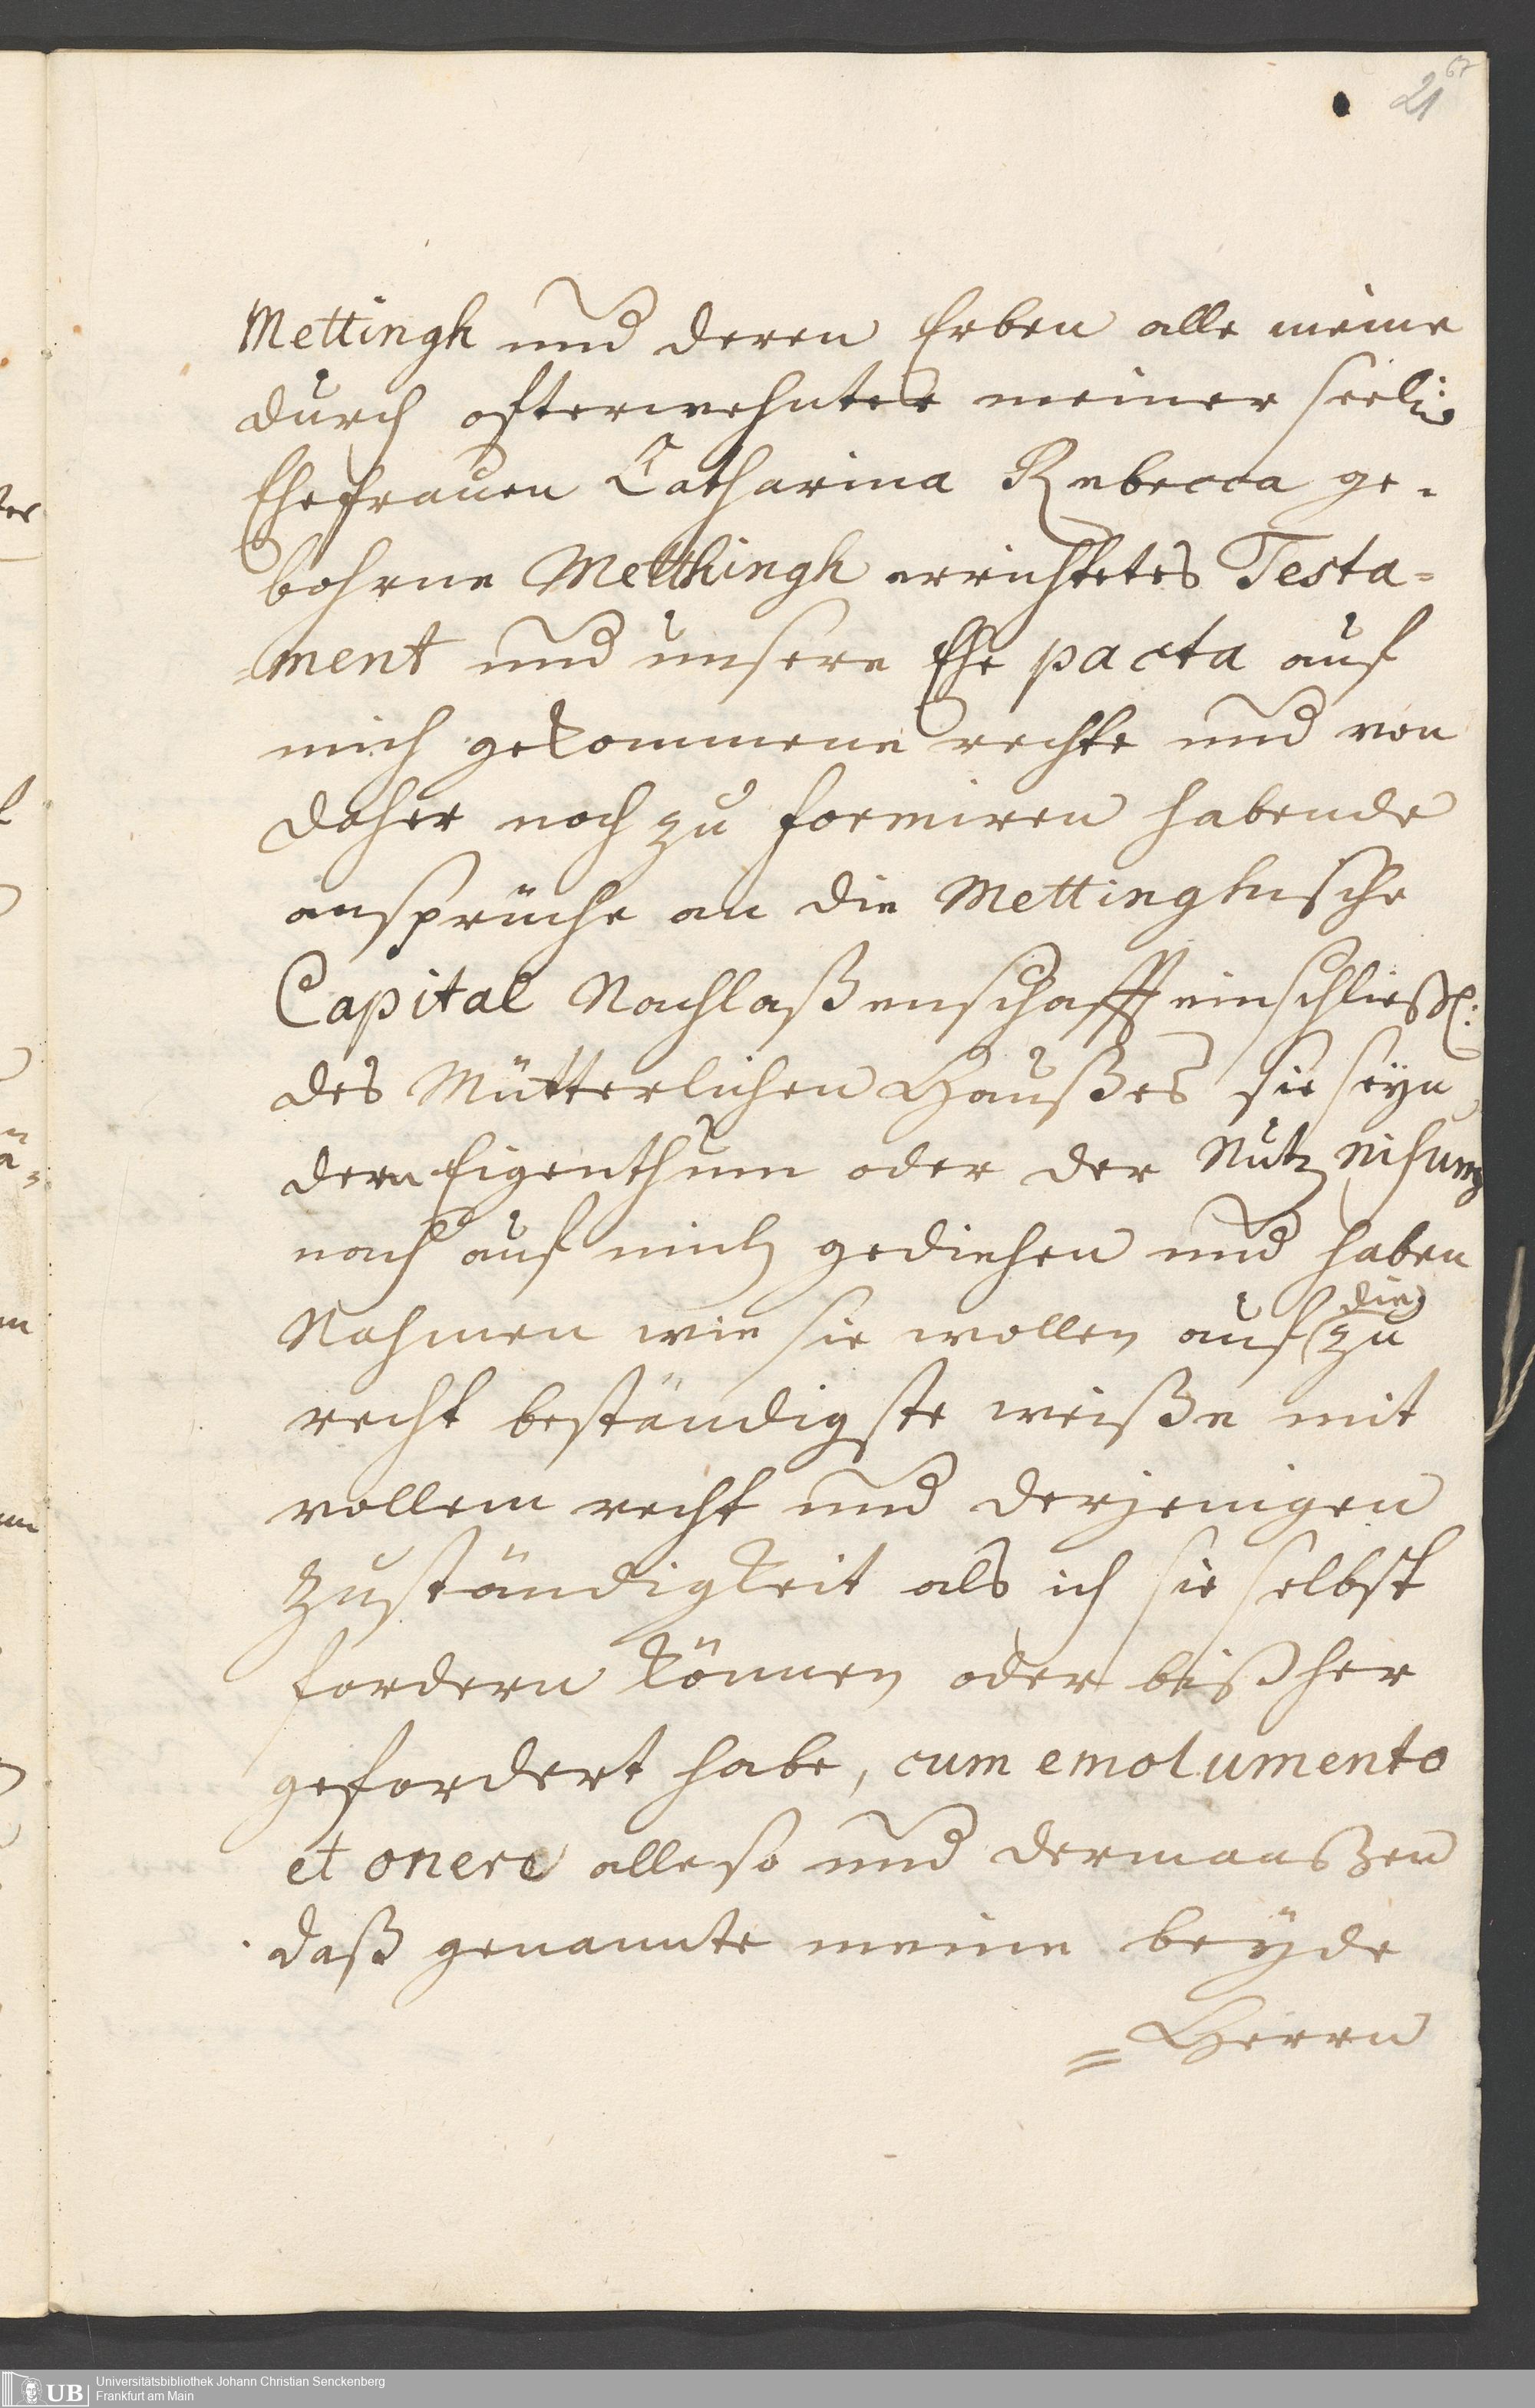 67
21
Mettingh und deren Erben alle meine
durch ofterwehnter meiner seelig
Ehefrauen Catharina Rebecca ge-
bohrne Metthingh errichtetes Testa-
ment und unsere Ehe pacta auf
mich gekommene rechte und von
daher noch zu formiren habende
ansprüche an die Mettinghische
Capital Nachlaßenschafft einschließl:
des Mütterlichen Haußes sie seyn
dem Eigenthum oder der Nutznisung
nach auf mich gediehen und haben
Nahmen wie sie wollen auf die zu
recht beständigste weiße mit
vollem recht und derjenigen
zuständigkeit als ich sie selbst
fordern können oder bißher
gefordert habe, cum emolumento
et onere alleso und dermaaszen
daß genannte meine beyde
= Herrn
UB Universitätsbibliothek Johann Christian Senckenberg
Frankfurt am Main